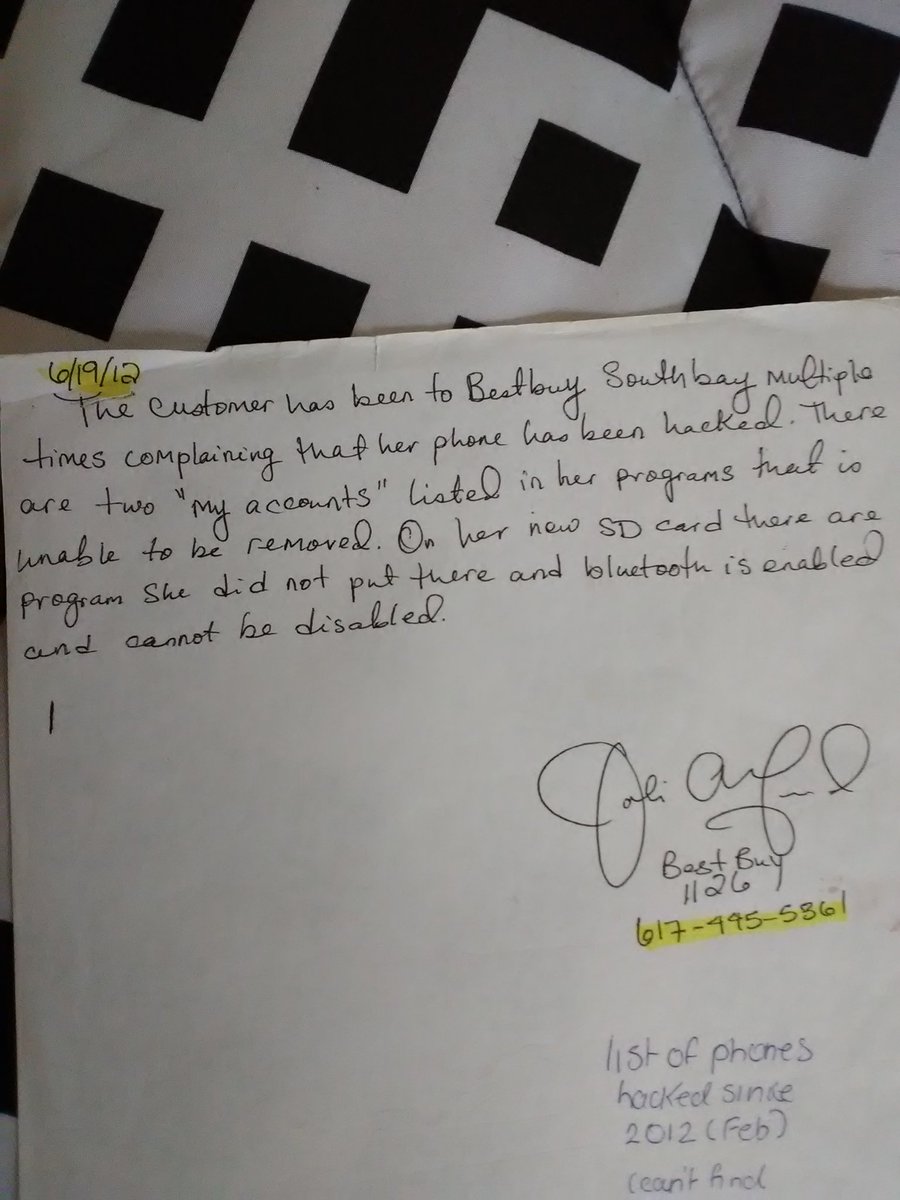 6/19/12
The customer has been to Bestbuy Southbay multiple
times complaining that her phone has been hacked. There
are two "my accounts" listed in her programs that is
unable to be removed. On her new SD card there are
program she did not put there and bluetooth is enabled
and cannot be disabled.
Best Buy
1126
617-445-5361
list of phones
hacked since
2012 (Feb)
(can't find